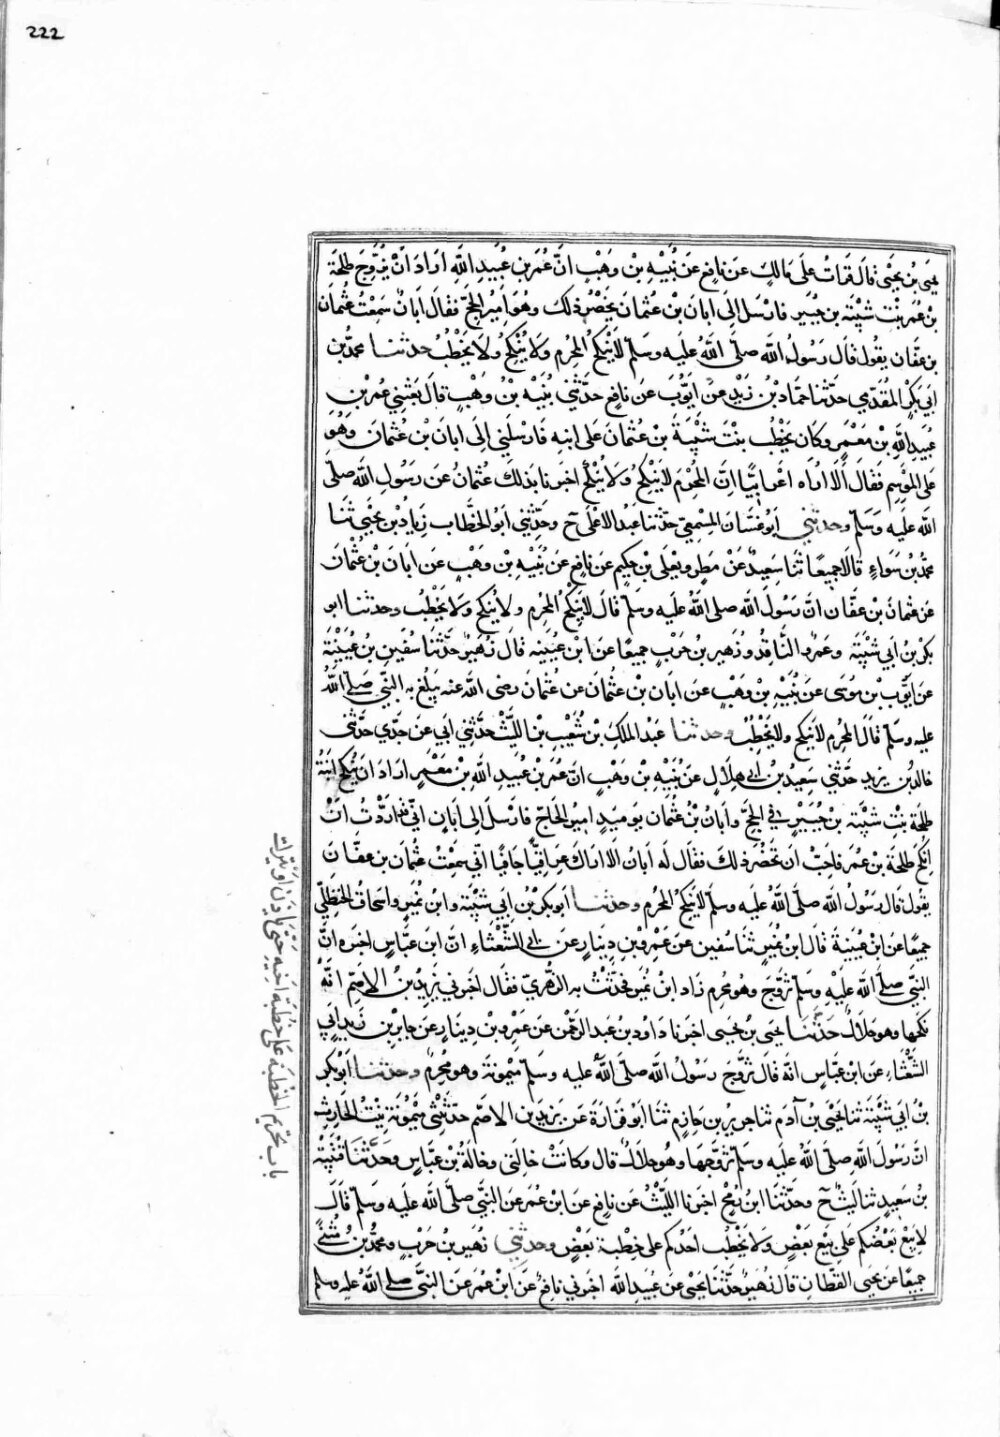 222
يحيى بن يحيى قال قرات على مالك عن نافع عن نبيه بن وهب ان عمر بن عبيد الله اراد ان يزوج طلحة
بن عمر بنت شيبة بن جبير فارسل الى ابان بن عثمان يحضر ذلك وهو امير الحج فقال ابان سمعت عثمان
بن عفان يقول قال رسول الله صلى الله عليه وسلم لا ينكح المحرم ولا ينكح ولا يخطب حدثنا محمد بن
ابي بكر المقدمي حدثنا حماد بن زيد عن ايوب عن نافع حدثني نبيه بن وهب قال بعثني عمر بن
عبيد الله بن معمر وكان يخطب بنت شيبة بن عثمان على ابنه فارسلني الى ابان بن عثمان وهو
على الموسم فقال الا اراه اعرابيا ان المحرم لا ينكح ولا ينكح اخبرنا بذلك عثمان عن رسول الله صلى
الله عليه وسلم وحدثني ابو غسان المسمعي حدثنا عبد الاعلى ح وحدثني ابو الخطاب زياد بن يحيى ثنا
محمد بن سواء قالا جميعا ثنا سعيد عن مطر ويعلى بن حكيم عن نافع عن نبيه بن وهب عن ابان بن عثمان
عن عثمان بن عفان ان رسول الله صلى الله عليه وسلم قال لا ينكح المحرم ولا ينكح ولا يخطب وحدثنا ابو
بكر بن ابي شيبة وعمرو الناقد وزهير بن حرب جميعا عن ابن عيينة قال زهير حدثنا سفين بن عيينة
عن ايوب بن موسى عن نبيه بن وهب عن ابان بن عثمان عن عثمان رضى الله عنه يبلغ به النبي صلى الله
عليه وسلم قال المحرم لا ينكح ولا يخطب وحدثنا عبد الملك بن شعيب بن الليث حدثني ابي عن جدي حدثني
خالد بن يزيد حدثني سعيد بن ابي هلال عن نبيه بن وهب ان عمر بن عبيد الله بن معمر اراد ان ينكح ابنه
طلحة بنت شيبة بن جبير في الحج وابان بن عثمان يوميذ امير الحاج فارسل الى ابان اني قد اردت ان
انكح طلحة بن عمر فاحب ان تحضر ذلك فقال له ابان الا اراك عراقيا جافيا اني سمعت عثمان بن عفان
يقول قال رسول الله صلى الله عليه وسلم لا ينكح المحرم وحدثنا ابو بكر بن ابي شيبة وابن نمير واسحاق الحنظلي
جميعا عن ابن عيينة قال ابن نمير ثنا سفين عن عمرو بن دينار عن ابي الشعثاء ان ابن عباس اخبره ان
النبي صلى الله عليه وسلم تزوج وهو محرم زاد ابن نمير فحدثت به الزهري فقال اخبرني يزيد بن الاصم انه
نكحها وهو حلال حدثنا يحيى بن يحيى اخبرنا داود بن عبد الرحمن عن عمرو بن دينار عن جابر بن زيد ابي
الشعثاء عن ابن عباس انه قال تزوج رسول الله صلى الله عليه وسلم ميمونة وهو محرم وحدثنا ابو بكر
بن ابي شيبة ثنا يحيى بن آدم ثنا جرير بن حازم ثنا ابو فزارة عن يزيد بن الاصم حدثتني ميمونة بنت الحارث
ان رسول الله صلى الله عليه وسلم تزوجها وهو حلال قال وكانت خالتي وخالة بن عباس وحدثنا قتيبة
بن سعيد ثنا ليث ح وحدثنا ابن رمح اخبرنا الليث عن نافع عن ابن عمر عن النبي صلى الله عليه وسلم قال
لا يبع بعضكم على بيع بعض ولا يخطب احدكم على خطبة بعض وحدثني زهير بن حرب ومحمد بن مثنى
جميعا عن يحيى القطان قال زهير حدثنا يحيى عن عبيد الله اخبرني نافع عن ابن عمر عن النبي صلى الله عليه وسلم
باب تحريم الخطبة على خطبة اخيه حتى ياذن او يترك